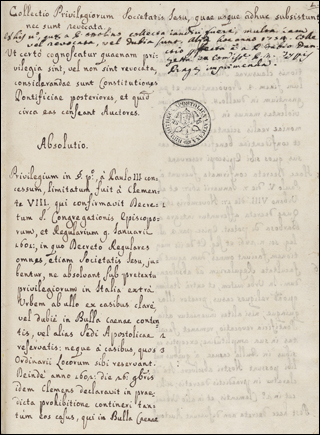 Collectio Privilegiorum Societatis Jesu, quae usque adhuc subsistunt
nec sunt revocata.
collecta fuere, multa iam
vel revocata, vel dubia sunt.
Ut certo cognoscatur quaenam pri-
vilegia sint, vel non sint revocata,
considerandae sunt Constitutiones
Pontificiae posteriores, et quid
circa eas censeant Auctores.
Absolutio.
Privilegium in §. p.º à Paulo III con-
cessum, limitatum fuit à Clemen-
te VIII. qui confirmavit Decre-
tum S. Congregationis Episcopo-
rum, et Regularium 9. Januarii
1601., in quo Decreto Regulares
omnes, etiam Societatis Jesu, ju-
bentur, ne absolvant sub pretextu
privilegiorum in Italia extra
Urbem ab ullo ex casibus clarè,
vel dubiè in Bulla Caenae conten-
tis, vel alias Sedi Apostolicae
reservatis: neque à casibus, quos
Ordinarii Locorum sibi reservant.
Deinde anno 1602. die 26. 9bris
idem Clemens declaravit in prae-
dicta prohibitione contineri tan-
tùm eos casus, qui in Bulla Caenae